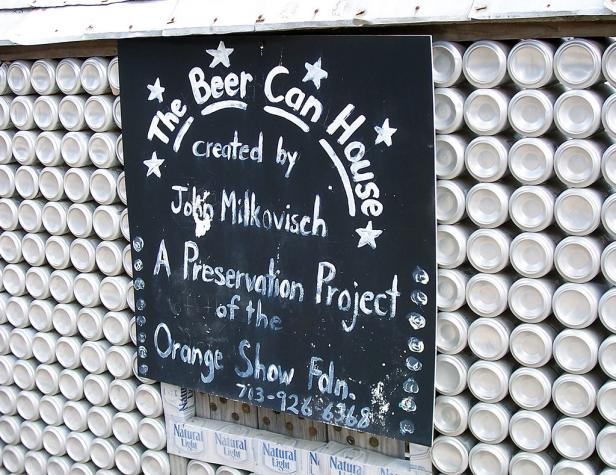 The Beer Can House
created by
John Milkovisch
A Preservation Project
of the
Orange Show Fdn.
713-926-6368
Natural Light
Natural Light
Natural Light
Natural Light